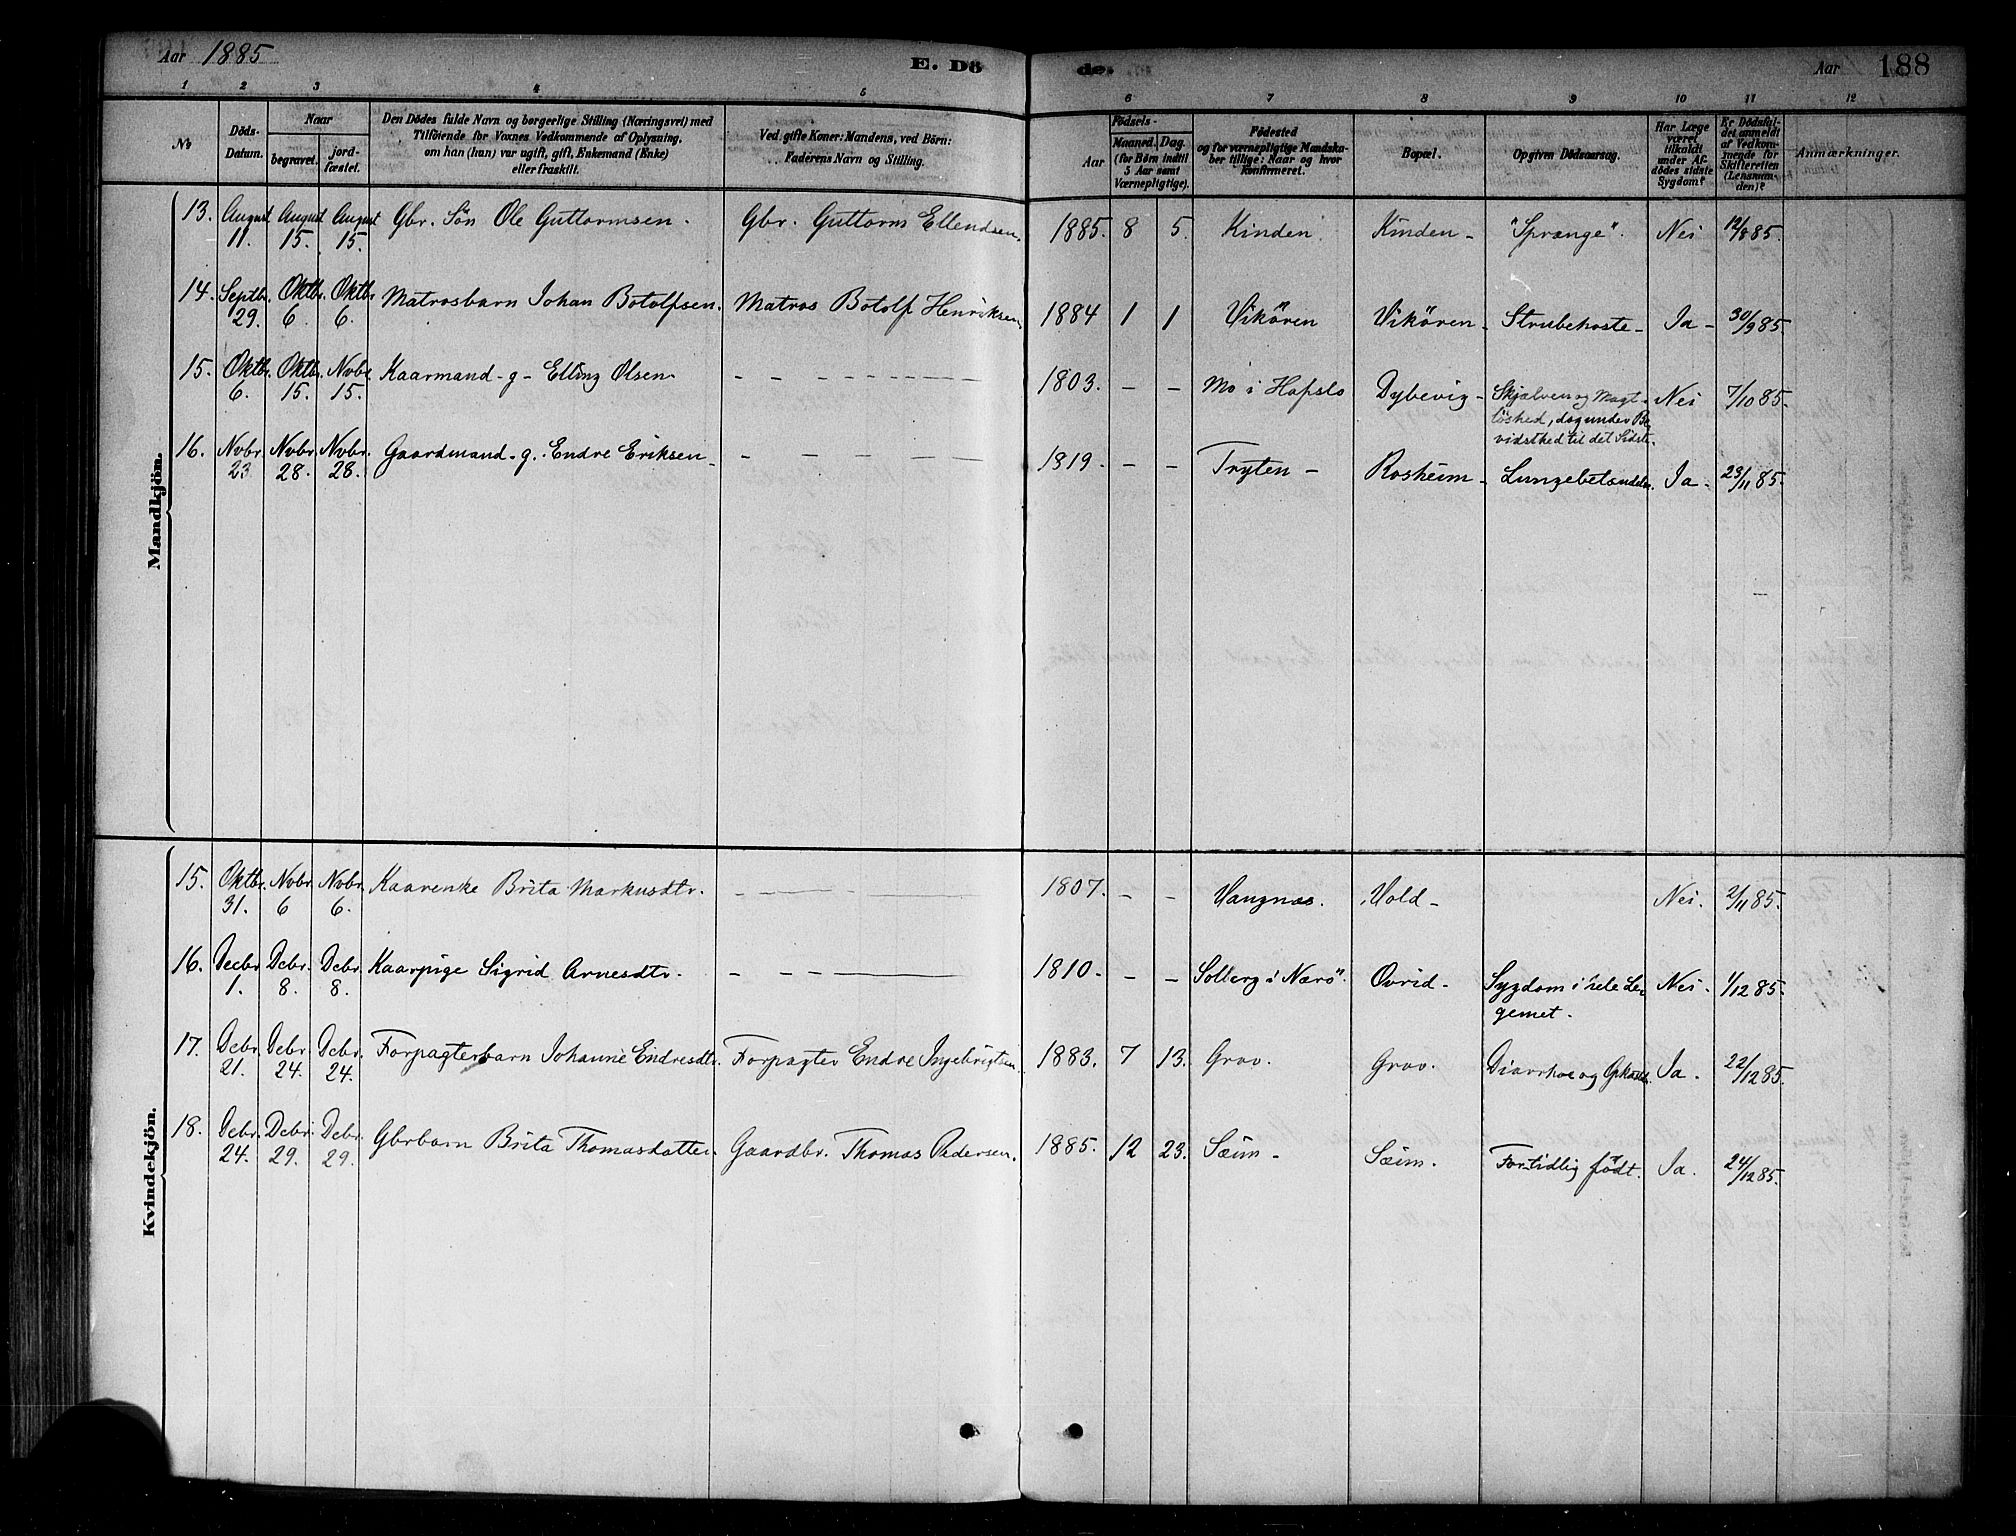 Aar 1885
E. Dö
de.
Aar 188
1 2 3 4 5 6 7 8 9 10 11 12
No
Döds-Datum.
Naar
begravet.
jord-fæstet.
Den Dödes fulde Navn og borgerlige Stilling (Næringsvei) med
Tilföiende for Voxnes Vedkommende af Oplysning,
om han (hun) var ugift, gift, Enkemand (Enke)
eller fraskilt.
Ved gifte Koner: Mandens, ved Börn:
Faderens Navn og Stilling.
Födsels-
Aar
Maaned. Dag.
(for Börn indtil
5 Aar samt
Værnepligtige).
Födested
og for værnepligtige Mandska-
ber tillige: Naar og hvor
konfirmeret.
Bopæl.
Opgiven Dödsaarsag.
Har Læge
været
tilkaldt
under Af-
dödes sidste
Sygdom?
Er Dödsfal-
det anmeldt
af Vedkom-
mende for
Skifteretten
(Lensman-
den)?
Anmærkninger.
Mandkjön.
13. August 11. August 15. August 15. Gbr. Sön Ole Guttormsen. Gbr. Guttorm Ellendsen. 1885. 8 5. Kinden Kinden - "Sprænge". Nei 12/8 85.
14. Septbr. 29. Oktbr. 6. Oktbr. 6. Matrosbarn Johan Botolfsen. Matros Botolf Henriksen. 1884 1 1 Vikören Vikören - Strubehoste - Ja - 30/9 85.
15. Oktbr. 6. Oktbr. 15. Nvbr. 15. Kaarmand - g - Elling Olsen. - - - 1803. - - Mo i Hafslo Dybevig - Skjælven og Magt-
löshed, dog under Be-
vidsthed til det Sidste. Nei 7/10 85.
16. Nvbr. 23 Nvbr. 28. Nvbr. 28. Gaardmand - g. Endre Eriksen - - - - 1819. - - Tryten - Rosheim - Lungebetændelse. Ja - 23/11 85.
Kvindekjön.
15. Oktbr. 31. Nvbr. 6 Nvbr. 6. Kaarenke Brita Markusdtr. - - - 1807. - - Vangnæs. Vold - Nei. 2/11 85.
16. Decbr. 1. Dcbr. 8. Dcbr. 8. Kaarpige Sigrid Arnesdtr. - - - 1810. - - Solberg i Nærö. Ovrid - Sygdom i hele Le-
gemet. Nei. 1/12 85.
17. Dcbr. 21. Dcbr. 24. Dcbr. 24. Forpagterbarn Johanne Endresdtr. Forpagter Endre Ingebrigtsen. 1883. 7 13. Grov. Grov. Diarrhoe og Opkast. Ja. 22/12 85.
18. Dcbr. 24. Dcbr. 29. Dcbr. 29. Gbrbarn Brita Thomasdatter. Gaardbr. Thomas Pedersen. 1885. 12 23. Sæim - Sæim. For tidlig födt. Ja. 24/12 85.